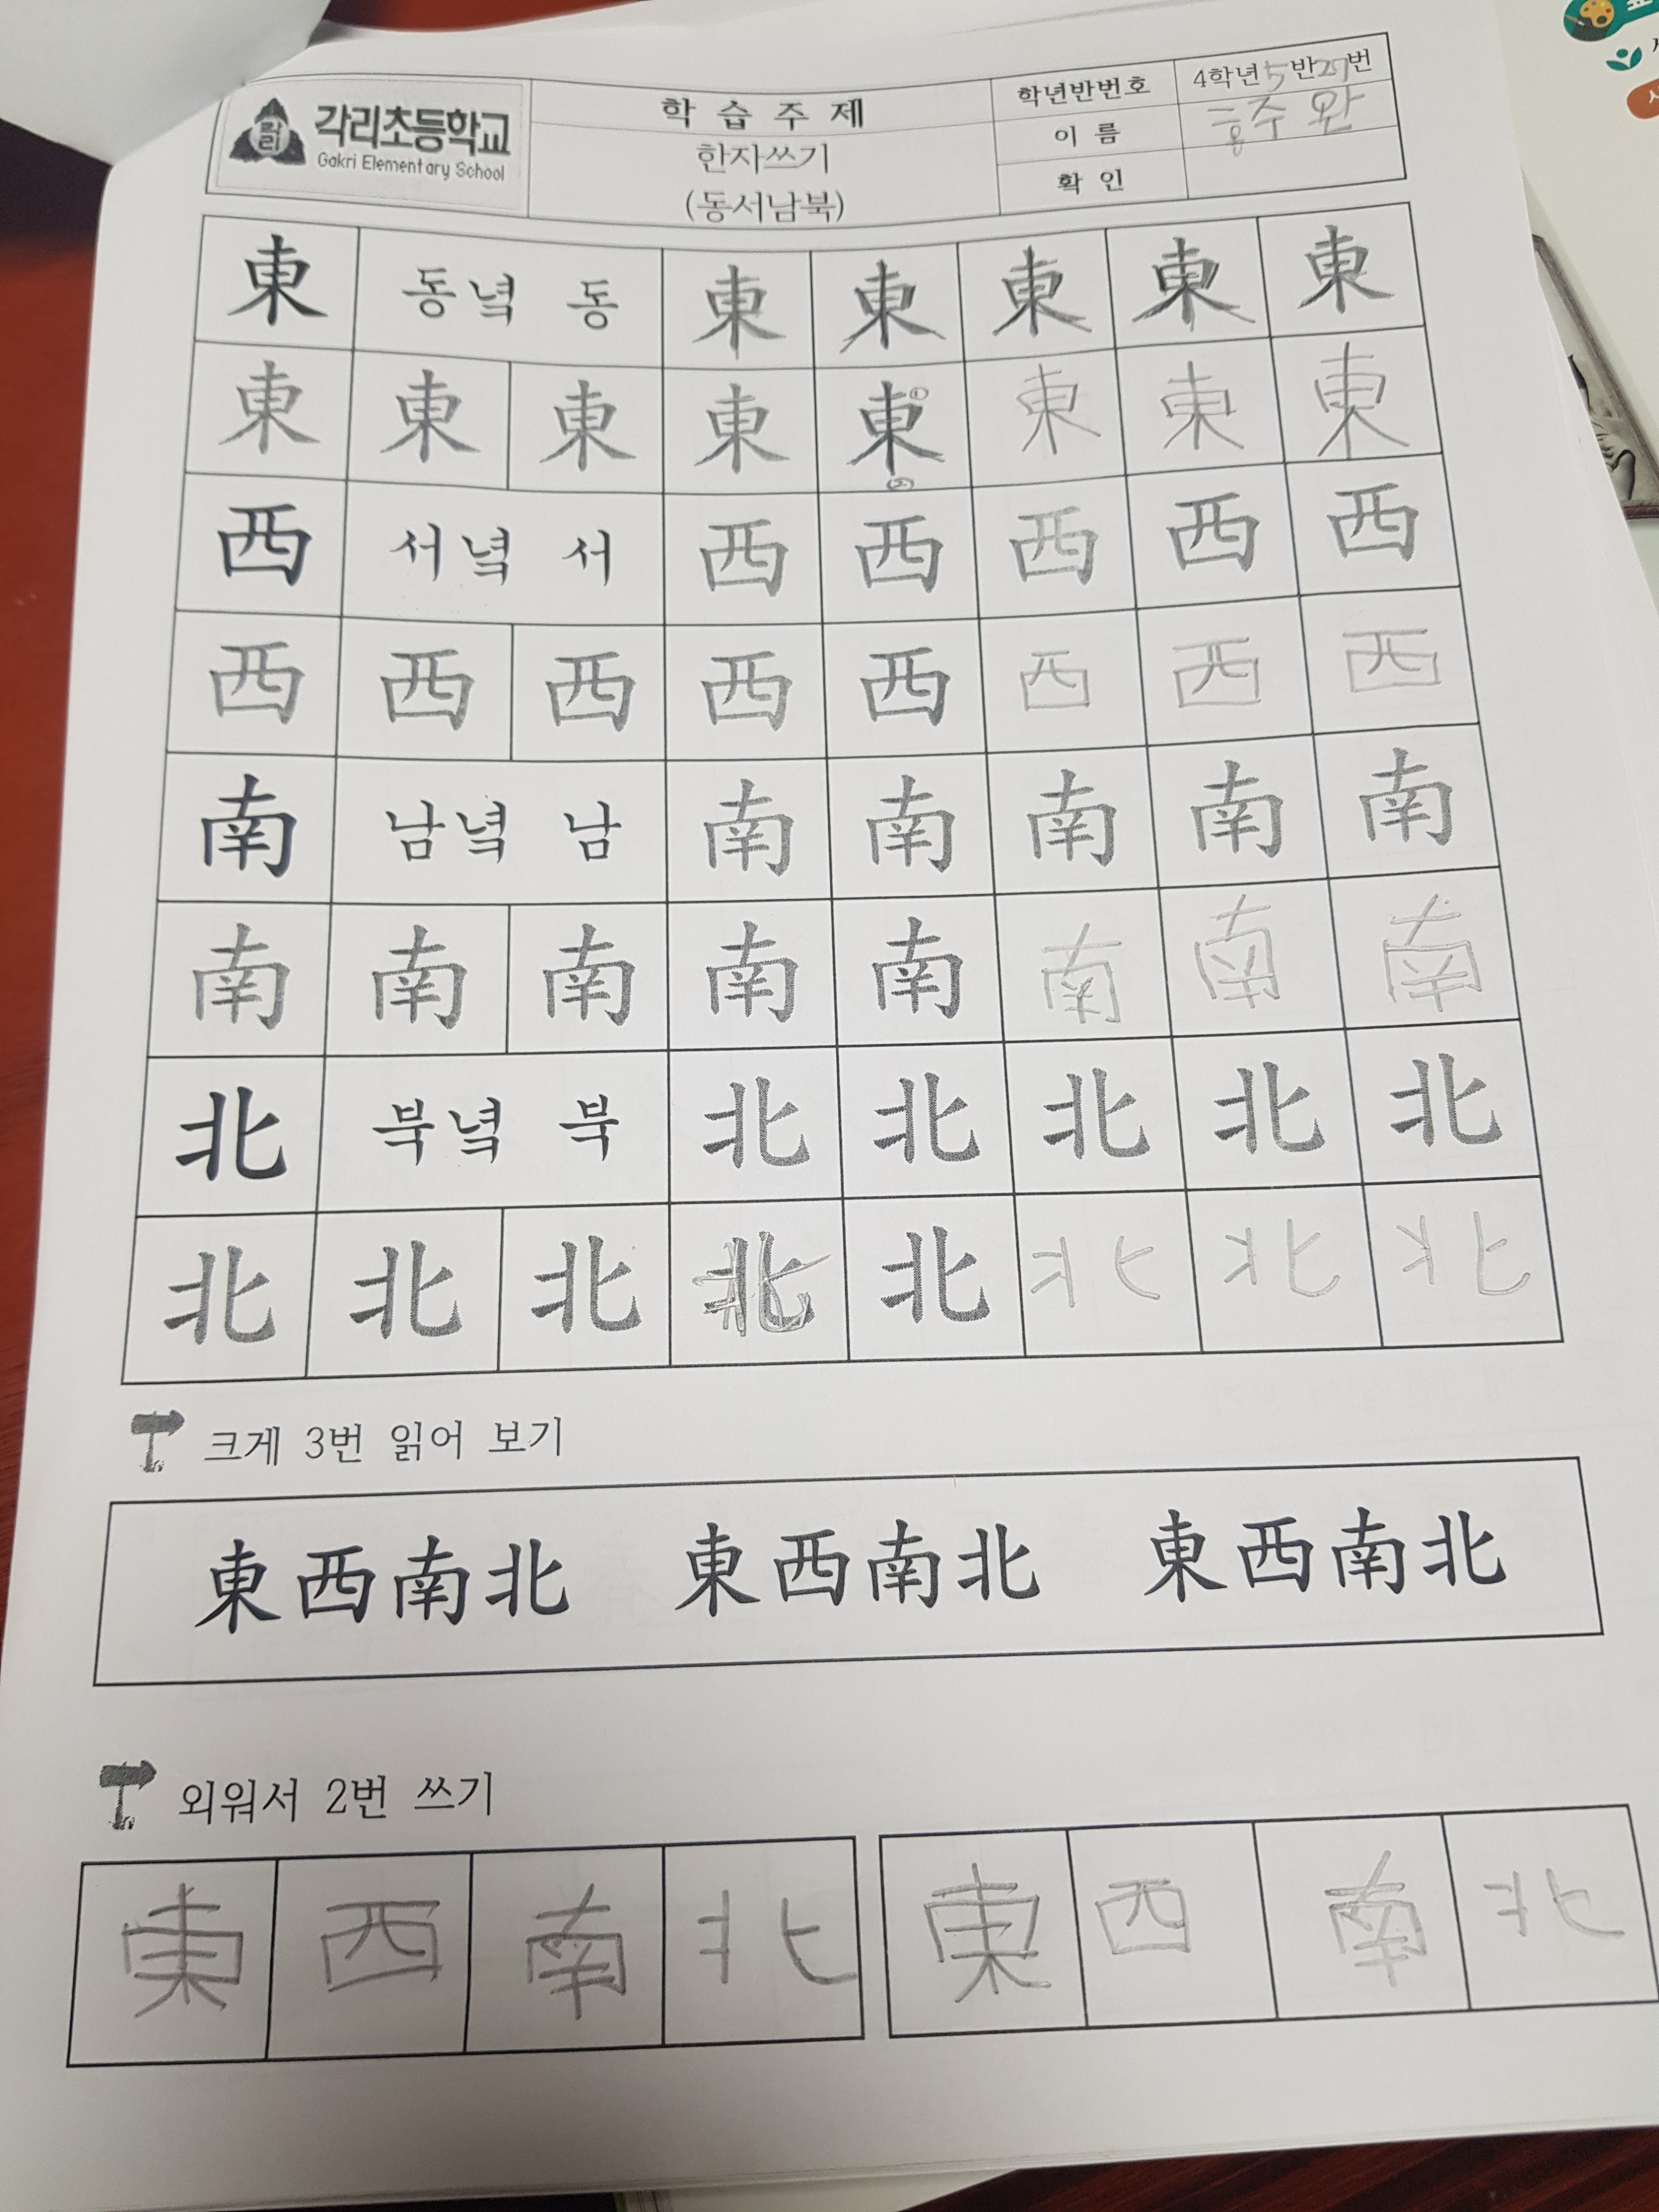 각리
각리초등학교
Gakri Elementary School
학습주제
한자쓰기
(동서남북)
학년반번호 4학년 5반 27번
이름 홍주완
확인
東 동녘 동 東 東 東 東 東
東 東 東 東 東 東 東 東
西 서녘 서 西 西 西 西 西
西 西 西 西 西 西 西 西
南 남녘 남 南 南 南 南 南
南 南 南 南 南 南 南 南
北 북녘 북 北 北 北 北 北
北 北 北 北 北 北 北 北
크게 3번 읽어 보기
東西南北 東西南北 東西南北
외워서 2번 쓰기
東 西 南 北 東 西 南 北